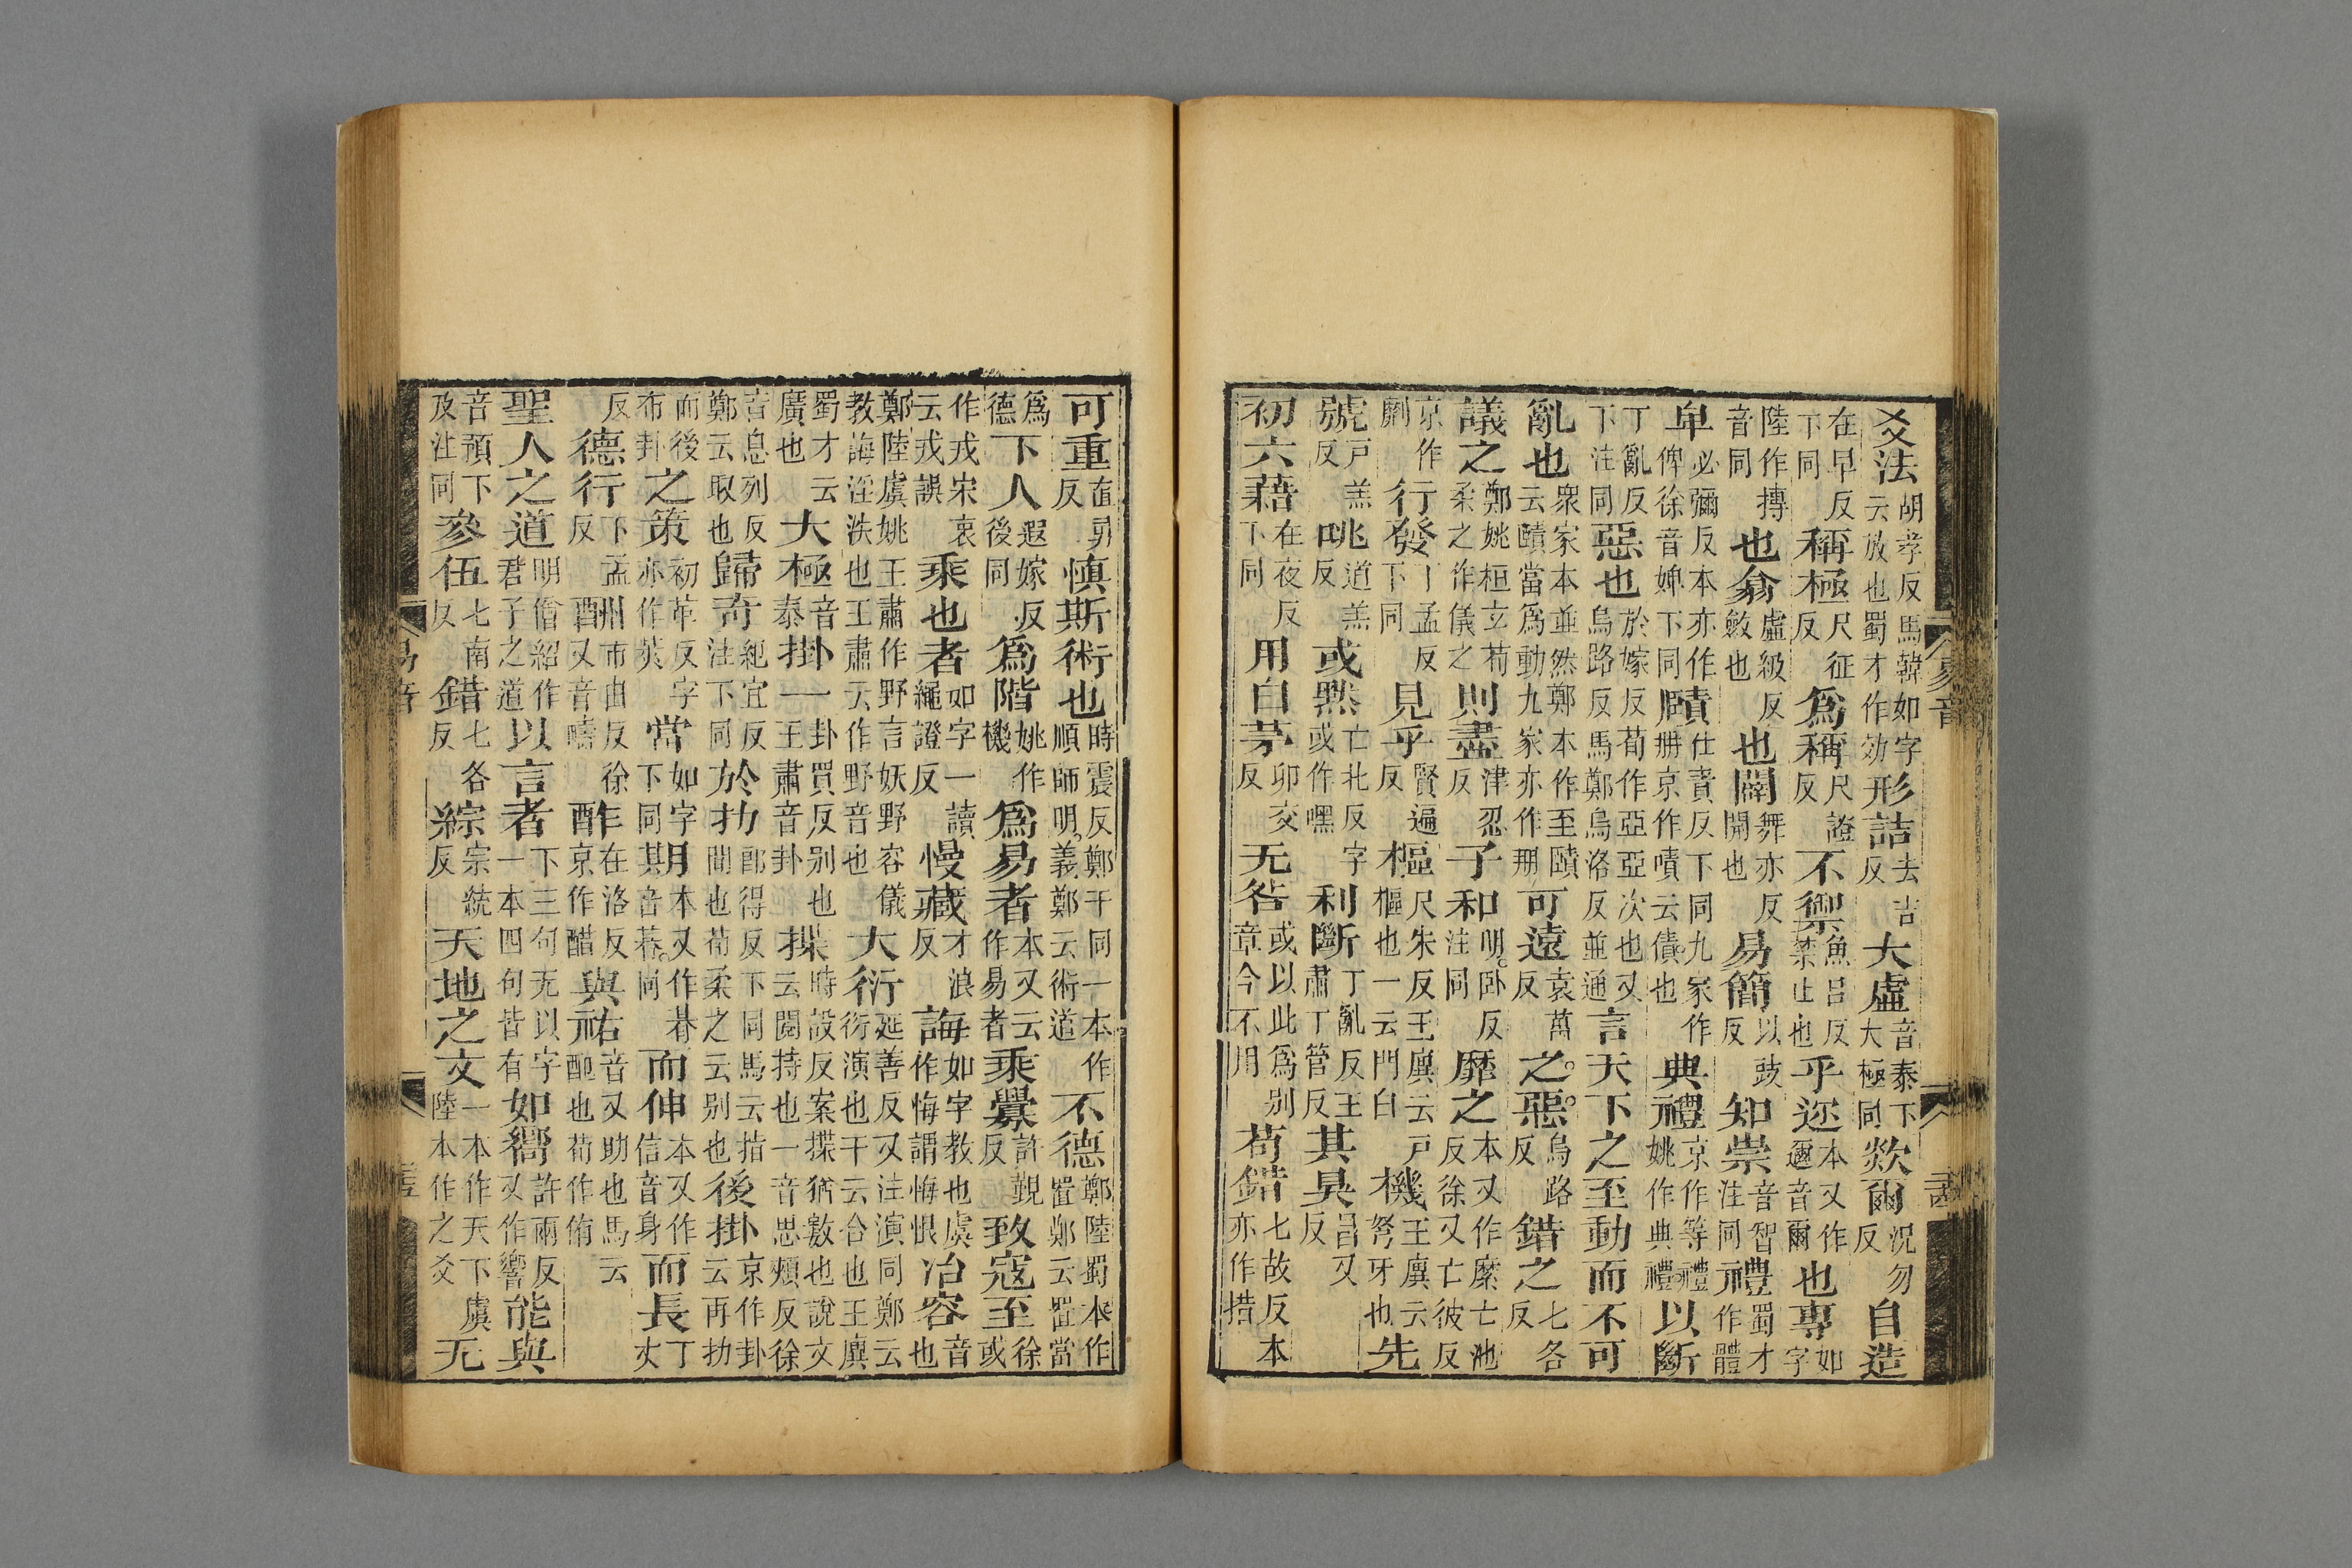 爻法胡孝反馬韓如字云放也蜀才作効形詰去吉反大虛音泰下大極同欻爾況勿反自造
在早反下同稱極尺征反爲稱尺證反不禦魚呂反禁止也乎迩本又作邇音爾也專如字
陸作摶音同也翕虛級反斂也也闢婢亦反開也易簡以豉反知崇音智注同禮蜀才作體
卑必彌反本亦作俾徐音婢下同賾仕責反下同九家作冊京作嘖云情也典禮京作等禮姚作典禮以斷
丁亂反下注同惡也於嫁反荀作亞亞次也又烏路反馬鄭烏洛反並通言天下之至動而不可
亂也衆家本並然鄭本作至賾云賾當爲動九家亦作冊可遠袁萬反之惡烏路反錯之七各反
議之鄭姚桓玄荀柔之作儀之則盡津忍反子和明臥反注同靡之本又作縻亡池反徐又亡彼反
京作劘行發下孟反下同見乎賢遍反樞尺朱反王廙云戶樞也一云門臼機王廙云弩牙也先
號戶羔反咷道羔反或默亡北反字或作嘿利斷丁亂反王肅丁管反其臭昌又反
初六藉在夜反下同用白茅卯交反无咎或以此爲別章今不用苟錯七故反本亦作措
可重直勇反慎斯術也時震反鄭干同一本作順師明義鄭云術道不德鄭陸蜀本作置鄭云置當
爲德下人遐嫁反後同爲階姚作機爲易者本又云作易者乘釁許覲反致寇至徐或
作戎宋衷云戎誤乘也者如字一讀繩證反慢藏才浪反誨如字教也虞作悔謂悔恨冶容音也
鄭陸虞姚王肅作野言妖野容儀教誨淫泆也王肅云作野音也大衍延善反又注演同鄭云衍演也干云合也王廙
蜀才云廣也大極音泰掛一卦買反別也王肅音卦揲時設反案揲猶數也說文云閱持也一音思頰反徐
音息列反鄭云取也歸奇紀宜反注下同於扐郎得反下同馬云指間也荀柔之云別也後掛京作卦云再扐
而後布卦之策初革反字亦作筴當如字下同期本又作朞同音朞而伸本又作信音身而長丁丈
反德行下孟反酬州市由反徐又音疇酢在洛反京作醋與祐音又助也馬云配也荀作侑
聖人之道明僧紹作君子之道以言者下三句无以字一本四句皆有如嚮許兩反又作響能與
音預下及注同參伍七南反錯七各反綜宗統反天地之文一本作天下虞陸本作之爻无